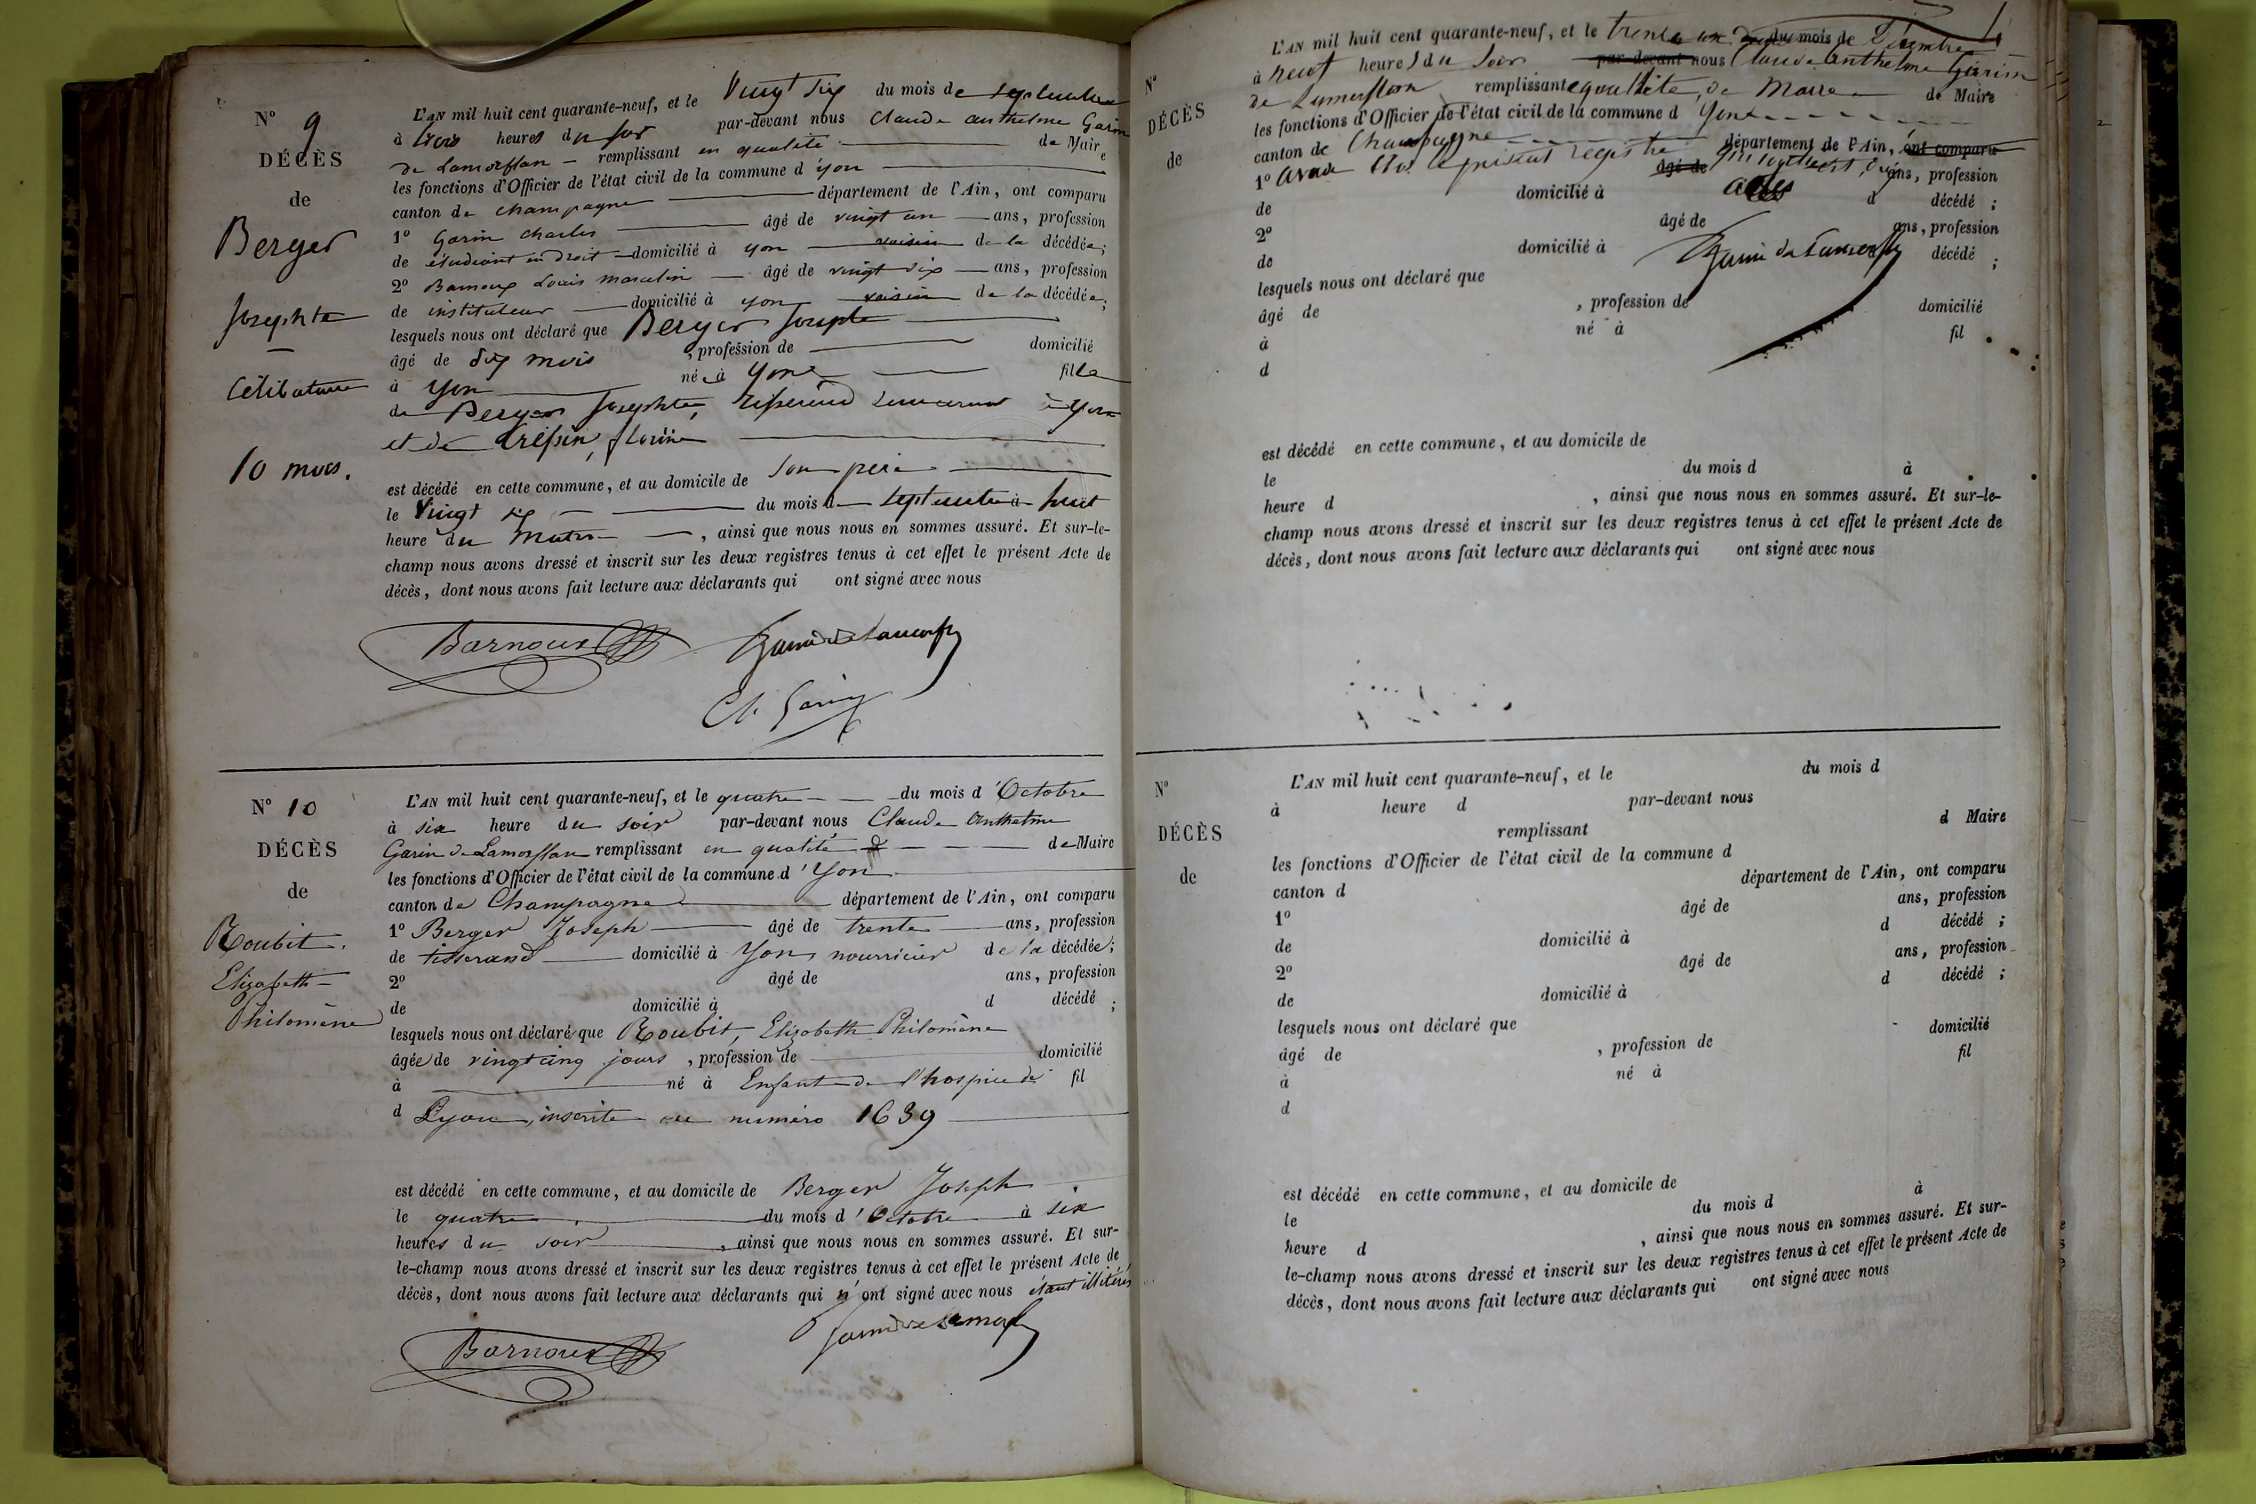 N° 9
DÉCÈS
de
Berger
Josephte
Célibataire
10 mois.
L'AN mil huit cent quarante-neuf, et le Vingt six du mois de septembre
à trois heures du soir par-devant nous Claude anthelme Garin
de Lamorflan remplissant en qualité de Maire
les fonctions d'Officier de l'état civil de la commune d'yon
canton de champagne département de l'Ain, ont comparu
1° Garin charles âgé de vingt un ans, profession
de étudiant en droit domicilié à yon voisin de la décédée;
2° Barnoux Louis marcelin âgé de vingt six ans, profession
de instituteur domicilié à yon voisin de la décédée;
lesquels nous ont déclaré que Berger Josephte
âgé de dix mois, profession de domicilié
à yon née à yon fille
de Berger Josephte, tisserand demeurant à yon
et de Crépin, florine
est décédé en cette commune, et au domicile de son père
le Vingt six du mois de septembre à huit
heure du matin, ainsi que nous nous en sommes assuré. Et sur-le-
champ nous avons dressé et inscrit sur les deux registres tenus à cet effet le présent Acte de
décès, dont nous avons fait lecture aux déclarants qui ont signé avec nous
Barnoux Garin de Lamorflan
Ch. Garin
N° 10
DÉCÈS
de
Roubit.
Elizabeth
Philomène
L'AN mil huit cent quarante-neuf, et le quatre du mois d'Octobre
à six heure du soir par-devant nous Claude Anthelme
Garin de Lamorflan remplissant en qualité de Maire
les fonctions d'Officier de l'état civil de la commune d'Yon
canton de Champagne département de l'Ain, ont comparu
1° Berger Joseph âgé de trente ans, profession
de tisserand domicilié à Yon nourricier de la décédée;
2° âgé de ans, profession
de domicilié à d décédé ;
lesquels nous ont déclaré que Roubit, Elizabeth Philomène
âgée de vingt cinq jours, profession de domicilié
à né à Enfant de l'hospice de fil
d Lyon, inscrite au numéro 1639
est décédé en cette commune, et au domicile de Berger Joseph
le quatre du mois d'Octobre à six
heures du soir, ainsi que nous nous en sommes assuré. Et sur-
le-champ nous avons dressé et inscrit sur les deux registres tenus à cet effet le présent Acte de
décès, dont nous avons fait lecture aux déclarants qui n'ont signé avec nous étant illitérés
Barnoux Garin de Lamorflan
N°
DÉCÈS
de
L'AN mil huit cent quarante-neuf, et le trente un du mois de Décembre
à neuf heures du soir par-devant nous Claude anthelme Garin
de Lamorflan remplissant en qualité de Maire de Maire
les fonctions d'Officier de l'état civil de la commune d Yon
canton de Champagne département de l'Ain, ont comparu
1° avons clos le présent registre âgé de qui contient dix ans, profession
de domicilié à actes d décédé ;
2° âgé de ans, profession
de domicilié à décédé ;
Garin de Lamorflan
lesquels nous ont déclaré que
âgé de , profession de domicilié
à né à fil
d
est décédé en cette commune, et au domicile de
le du mois d à
heure d , ainsi que nous nous en sommes assuré. Et sur-le-
champ nous avons dressé et inscrit sur les deux registres tenus à cet effet le présent Acte de
décès, dont nous avons fait lecture aux déclarants qui ont signé avec nous
N°
DÉCÈS
de
L'AN mil huit cent quarante-neuf, et le du mois d
à heure d par-devant nous
remplissant d Maire
les fonctions d'Officier de l'état civil de la commune d
canton d département de l'Ain, ont comparu
1° âgé de ans, profession
de domicilié à d décédé ;
2° âgé de ans, profession
de domicilié à d décédé ;
lesquels nous ont déclaré que
âgé de , profession de domicilié
à né à fil
d
est décédé en cette commune, et au domicile de
le du mois d à
heure d , ainsi que nous nous en sommes assuré. Et sur-
le-champ nous avons dressé et inscrit sur les deux registres tenus à cet effet le présent Acte de
décès, dont nous avons fait lecture aux déclarants qui ont signé avec nous